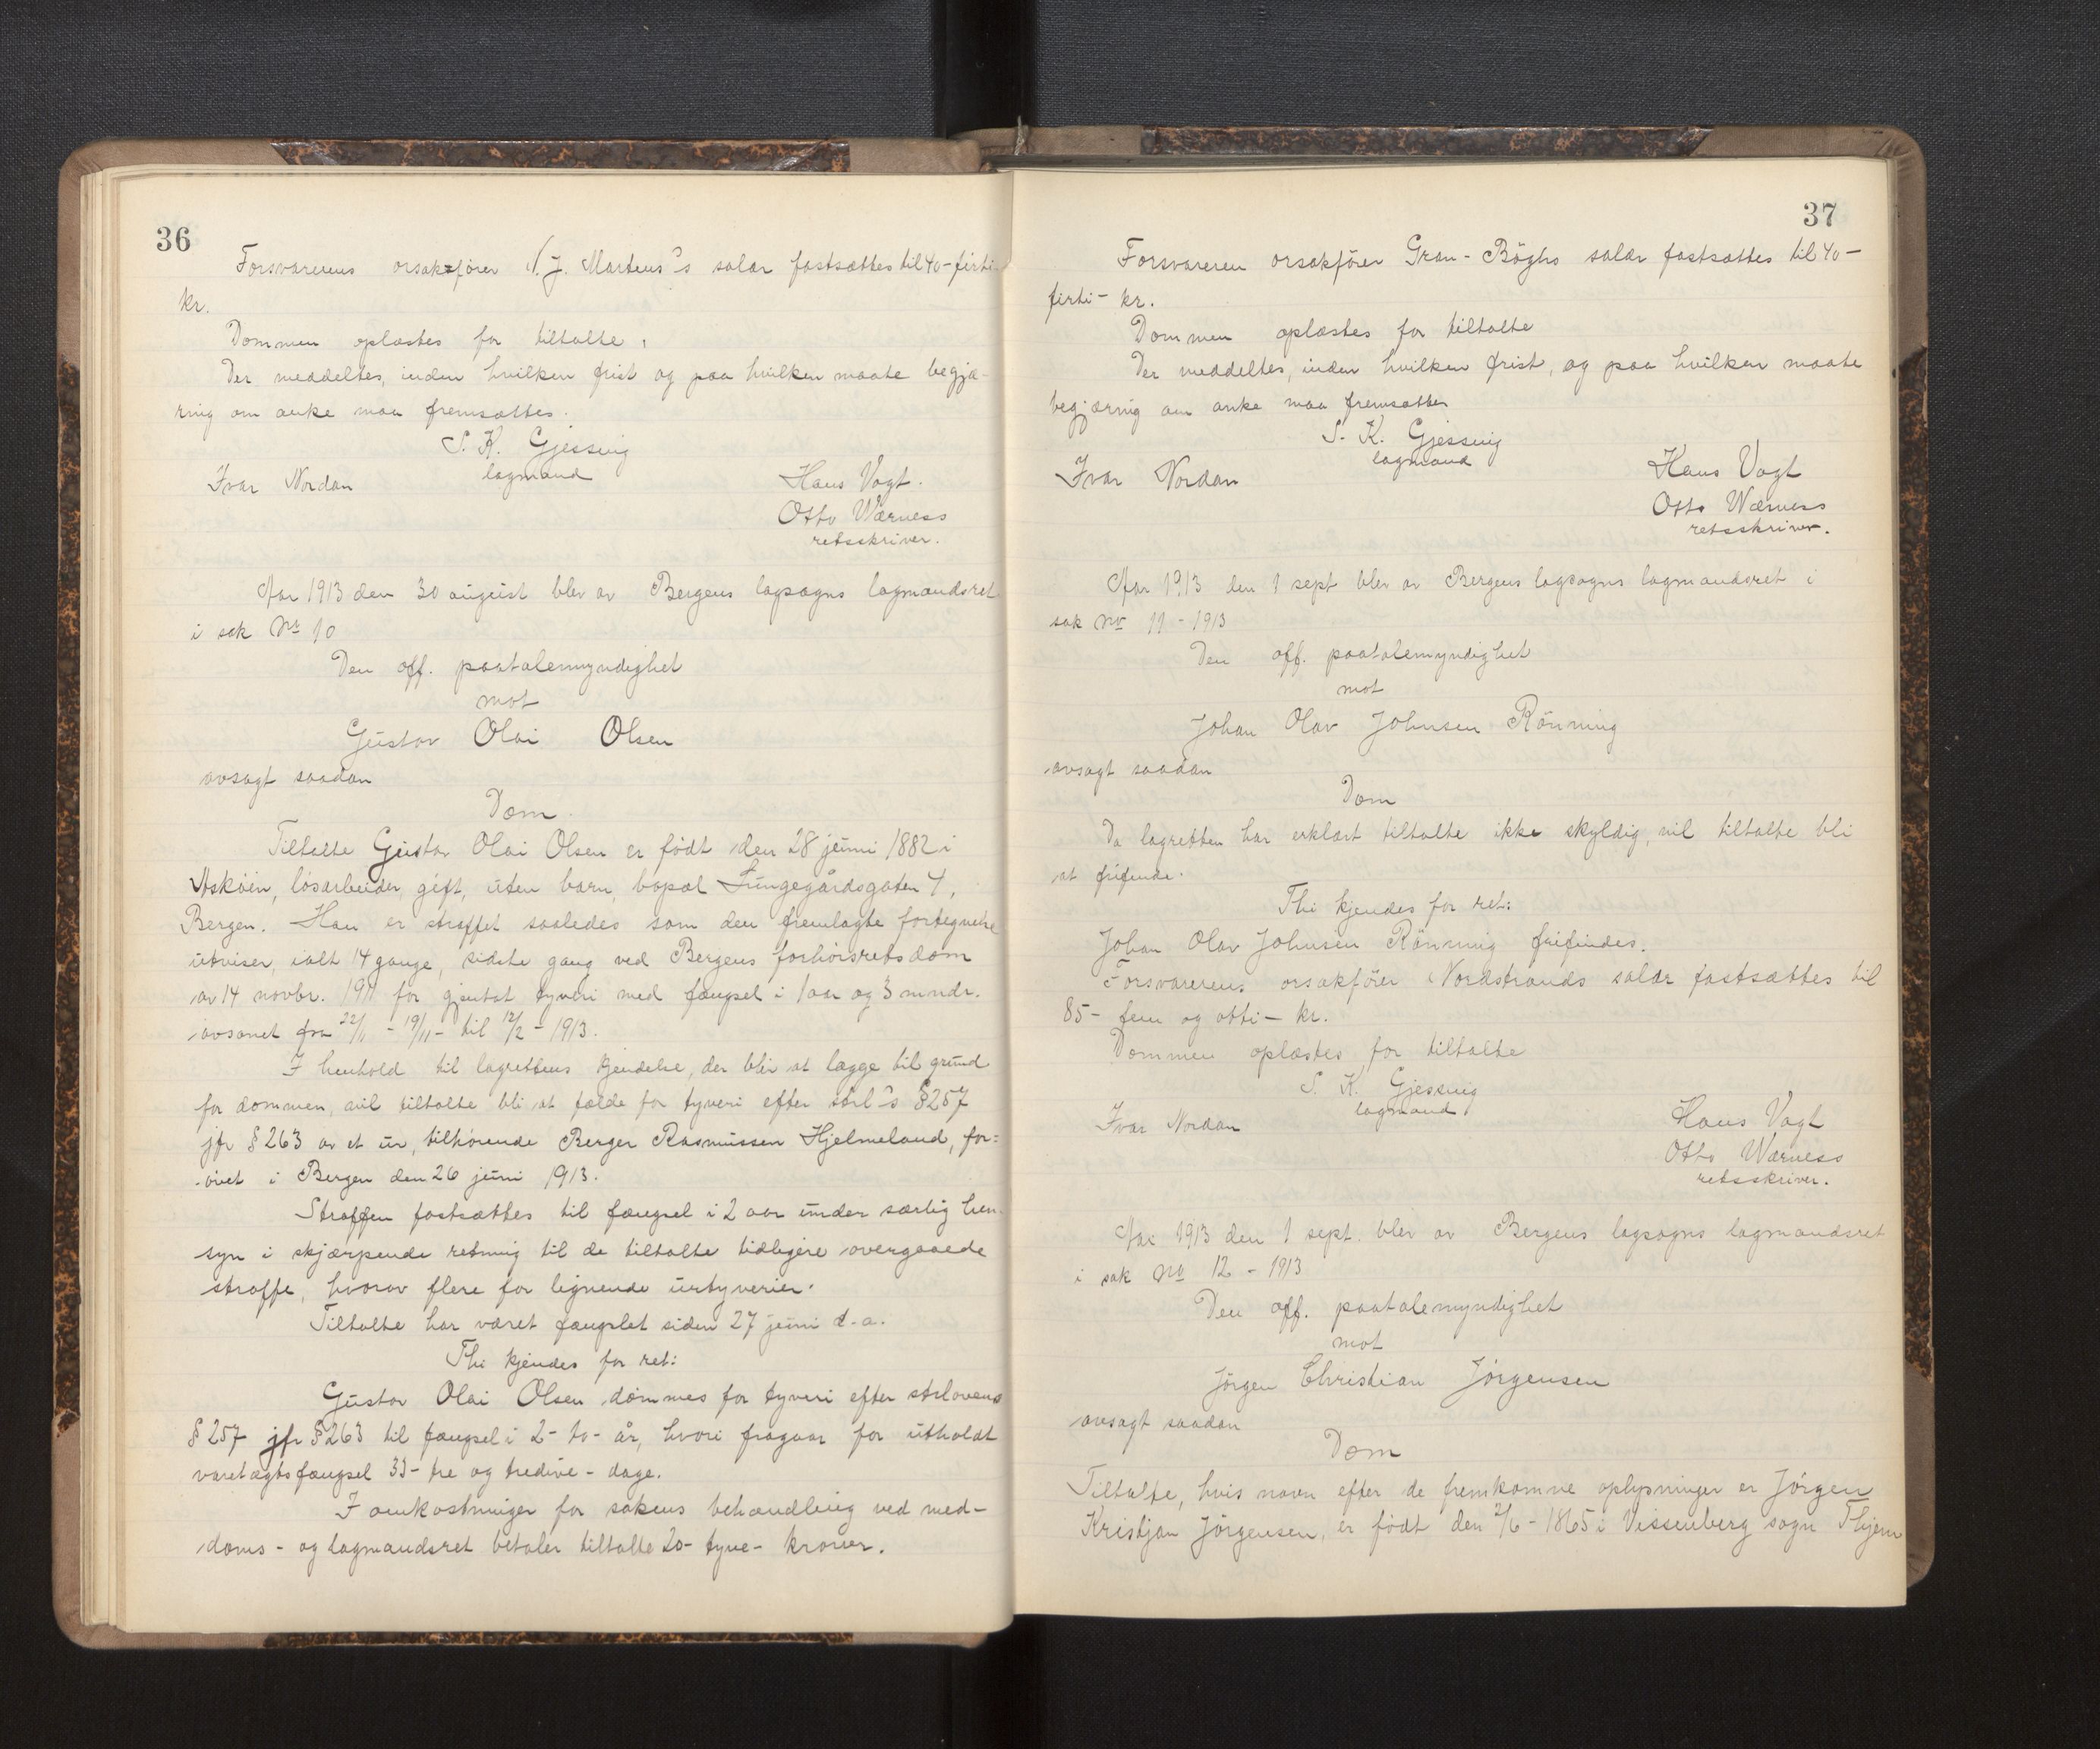 36
Forsvarerens orsakfører N. J. Martens's salær fastsættes til 40- firti
kr.
Dommen oplæstes for tiltalte.
Der meddeltes, inden hvilken frist og paa hvilken maate begjæ-
ring om anke maa fremsættes.
S. K. Gjessing
lagmand
Ivar Nordan
Hans Vogt.
Otto Wærness
retsskriver.
Aar 1913 den 30 august blev av Bergens lagsogns lagmandsret
i sak No 10
Den off. paatalemyndighet
mot
Gustav Olai Olsen
avsagt saadan
Dom.
Tiltalte Gustav Olai Olsen er født den 28 juni 1882 i
Askøen, løsarbeider, gift, uten barn, bopæl Lungegårdsgaten 4,
Bergen. Han er straffet saaledes som den fremlagte fortegnelse
utviser, ialt 14 gange, sidste gang ved Bergens forhørsretsdom
av 14 novbr. 1911 for gjentat tyveri med fængsel i 1 aar og 3 mndr.
avsonet fra 22/11 - 19/11 - til 12/2 - 1913.
I henhold til lagrettens kjendelse, der blir at lægge til grund
for dommen, vil tiltalte bli at fælde for tyveri efter strl's § 257
jfr § 263 av et ur, tilhørende Berger Rasmussen Hjelmeland, for=
øvet i Bergen den 26 juni 1913.
Straffen fastsættes til fængsel i 2 aar under særlig hen-
syn i skjærpende retning til de tiltalte tidligere overgaaede
straffe, hvorav flere for lignende urtyverier.
Tiltalte har været fængslet siden 27 juni d.a.
Thi kjendes for ret:
Gustav Olai Olsen dømmes for tyveri efter strlovens
§ 257 jfr § 263 til fængsel i 2- to- år, hvori fragaar for utholdt
varetægtsfængsel 33- tre og tredive - dage.
I omkostninger for sakens behandling ved med-
doms- og lagmandsret betaler tiltalte 20- tyve- kroner.
37
Forsvareren orsakfører Gran-Bøghs salær fastsættes til 40 -
firti- kr.
Dommen oplæstes for tiltalte
Der meddeltes, inden hvilken frist, og paa hvilken maate
begjæring om anke maa fremsættes
S. K. Gjessing
lagmand
Ivar Nordan
Hans Vogt
Otto Wærness
retsskriver.
Aar 1913 den 1 sept blev av Bergens lagsogns lagmandsret i
sak No 11 - 1913
Den off. paatalemyndighet
mot
Johan Olav Johnsen Rönning
avsagt saadan
Dom
Da lagretten har erklært tiltalte ikke skyldig, vil tiltalte bli
at frifinde.
Thi kjendes for ret:
Johan Olav Johnsen Rönning frifindes.
Forsvarerens orsakfører Nordstrands salær fastsættes til
85- fem og otti - kr.
Dommen oplæstes for tiltalte
S. K. Gjessing
lagmand
Ivar Nordan
Hans Vogt
Otto Wærness
retsskriver.
Aar 1913 den 1 sept. blev av Bergens lagsogns lagmandsret
i sak No 12 - 1913
Den off. paatalemyndighet
mot
Jörgen Christian Jörgensen
avsagt saadan
Dom
Tiltalte, hvis navn efter de fremkomne oplysninger er Jörgen
Kristjan Jörgensen, er født den 2/6 - 1865 i Vissenberg sogn